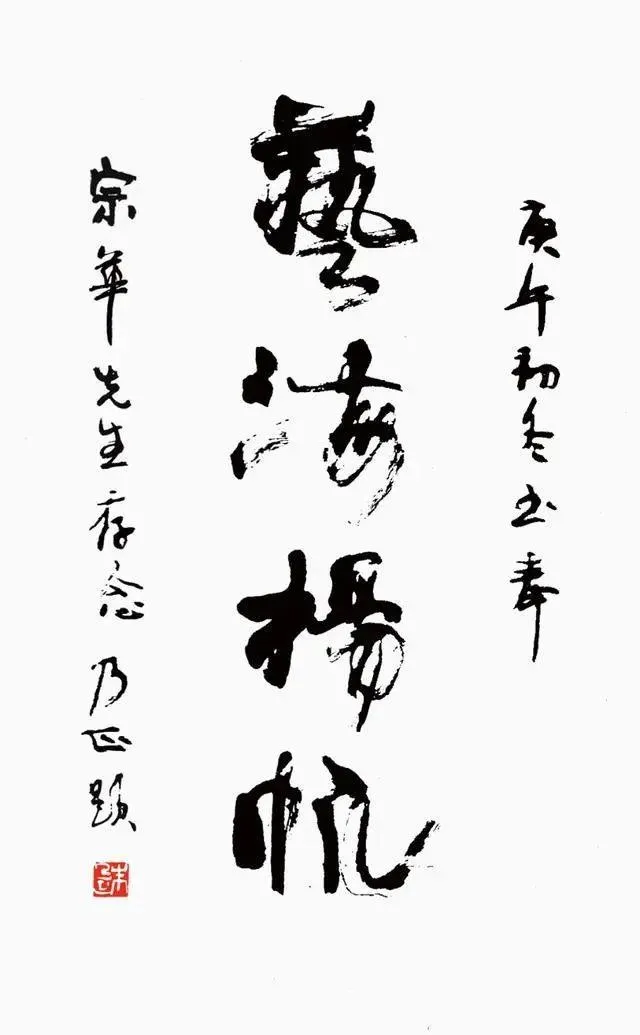 庚午初冬书奉
藝海揚帆
宗華先生存念 乃正题